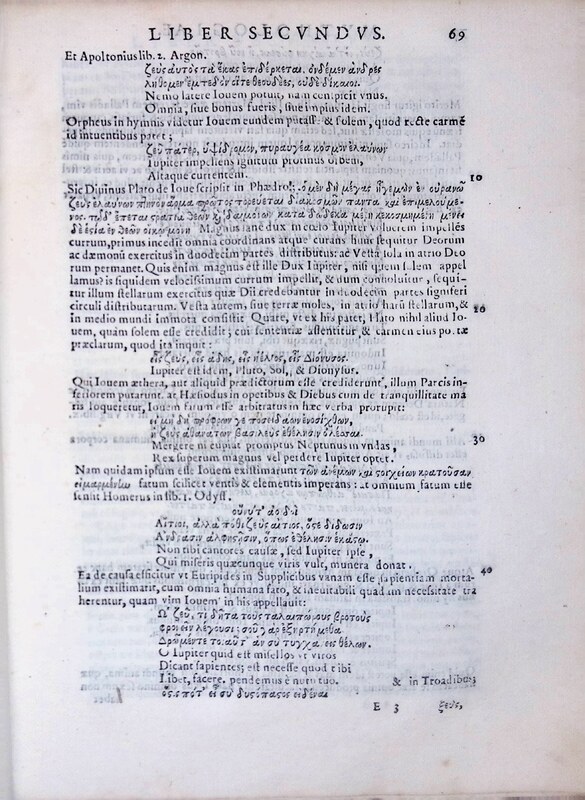 LIBER SECVNDVS. 69
Et Apoltonius lib. 2. Argon.
ζεὺς αὐτὸς τὰ ἕκας ἐπιδέρκεται. οὐδέ μεν ἄνδρες
λήθομεν ἔμπεδον οἵτε θεουδέες, οὐδὲ δίκαιοι.
Nemo latere Iouem potuit, nam conspicit vnus.
Omnia, siue bonus fueris, siue impius idem.
Orpheus in hymnis videtur Iouem eundem putasse & solem, quod teste carmē
id intuentibus patet;
ζεῦ πάτερ, ὑψίδρομον, πυραυγέα κόσμον ἐλαύνων
Iupiter impellens ignitum protinus orbem,
Altaque currentem. 10
Sic Diuinus Plato de Ioue scripsit in Phædro: ὁ μὲν δὴ μέγας ἡγεμὼν ἐν οὐρανῷ
ζεὺς ἐλαύνων πτηνὸν ἅρμα πρῶτος πορεύεται διακοσμῶν πάντα καὶ ἐπιμελούμε-
νος. τῷ δ' ἕπεται στρατιὰ θεῶν καὶ δαιμόνων κατὰ δώδεκα μέρη κεκοσμημένη· μένει
δὲ ἑστία ἐν θεῶν οἴκῳ μόνη. Magnus sane dux in cœlo Iupiter volucrem impellēs
currum, primus incedit omnia coordinans atque curans hunc sequitur Deorum
ac dæmonū exercitus in duodecim partes distributus: ac Vesta sola in atrio Deo
rum permanet. Quis enim magnus est ille Dux Iupiter, nisi quem solem appel
lamus? is siquidem velocissimum currum impellit, & dum conuoluitur, sequi-
tur illum stellarum exercitus quæ Dii credebantur in duodecim partes signiferi
circuli distributarum. Vesta autem, siue terræ moles, in atrio harū stellarum, & 20
in medio mundi immota consistit Quare, vt ex his patet, Plato nihil aliud Io-
uem, quàm solem esse credidit; cui sententiæ assentitur & carmen eius poetæ
præclarum, quod ita inquit:
εἷς ζεὺς, εἷς ἀΐδης, εἷς ἥλιος, εἷς Διόνυσος.
Iupiter est idem, Pluto, Sol, & Dionysus.
Qui Iouem æthera, aut aliquid prædictorum esse crediderunt, illum Parcis in-
feriorem putarunt. at Hæsiodus in operibus & Diebus cum de tranquillitate ma
ris loqueretur, Iouem fatum esse arbitratus in hæc verba prorupit:
εἰ μὴ δὴ πρόφρων γε ποσειδάων ἐνοσίχθων,
ἢ ζεὺς ἀθανάτων βασιλεὺς ἐθέλησιν ὀλέσσαι. 30
Mergere ni cupiat promptus Neptunus in vndas,
Rex superum magnus vel perdere Iupiter optet.
Nam quidam ipsum esse Iouem existimarunt τῶν ἀνέμων καὶ στοιχείων κρατοῦσαν
εἱμαρμένην fatum scilicet ventis & elementis imperans: at omnium fatum esse
sensit Homerus in lib. 1. Odyss.
οὔνυτ' ἀοιδοὶ
Αἴτιοι, ἀλλὰ πόθι ζεὺς αἴτιος, ὅστε δίδωσιν
Ἀνδράσιν ἀλφηστῇσιν, ὅπως ἐθέλησιν ἑκάστῳ.
Non tibi cantores causæ, sed Iupiter ipse,
Qui miseris quæcunque viris vult, munera donat. 40
Ea de causa efficitur vt Euripides in Supplicibus vanam esse sapientiam morta-
lium existimarit, cum omnia humana fato, & ineuitabili quadam necessitate tra
herentur, quam vim Iouem in his appellauit:
Ὦ ζεῦ, τί δῆτα τοὺς ταλαιπώρους βροτοὺς
φρονεῖν λέγουσι; σοῦ γὰρ ἐξηρτήμεθα
Δρῶμέν τε τοιαῦτ' ἂν σὺ τυγχάνεις θέλων.
O Iupiter quid est misellos vt viros
Dicant sapientes; est necesse quod tibi
Libet, facere. pendemus è nutu tuo. & in Troadibus
ὅστις πότ' εἶ σὺ δυστόπαστος εἰδέναι
E 3 ζεὺς,